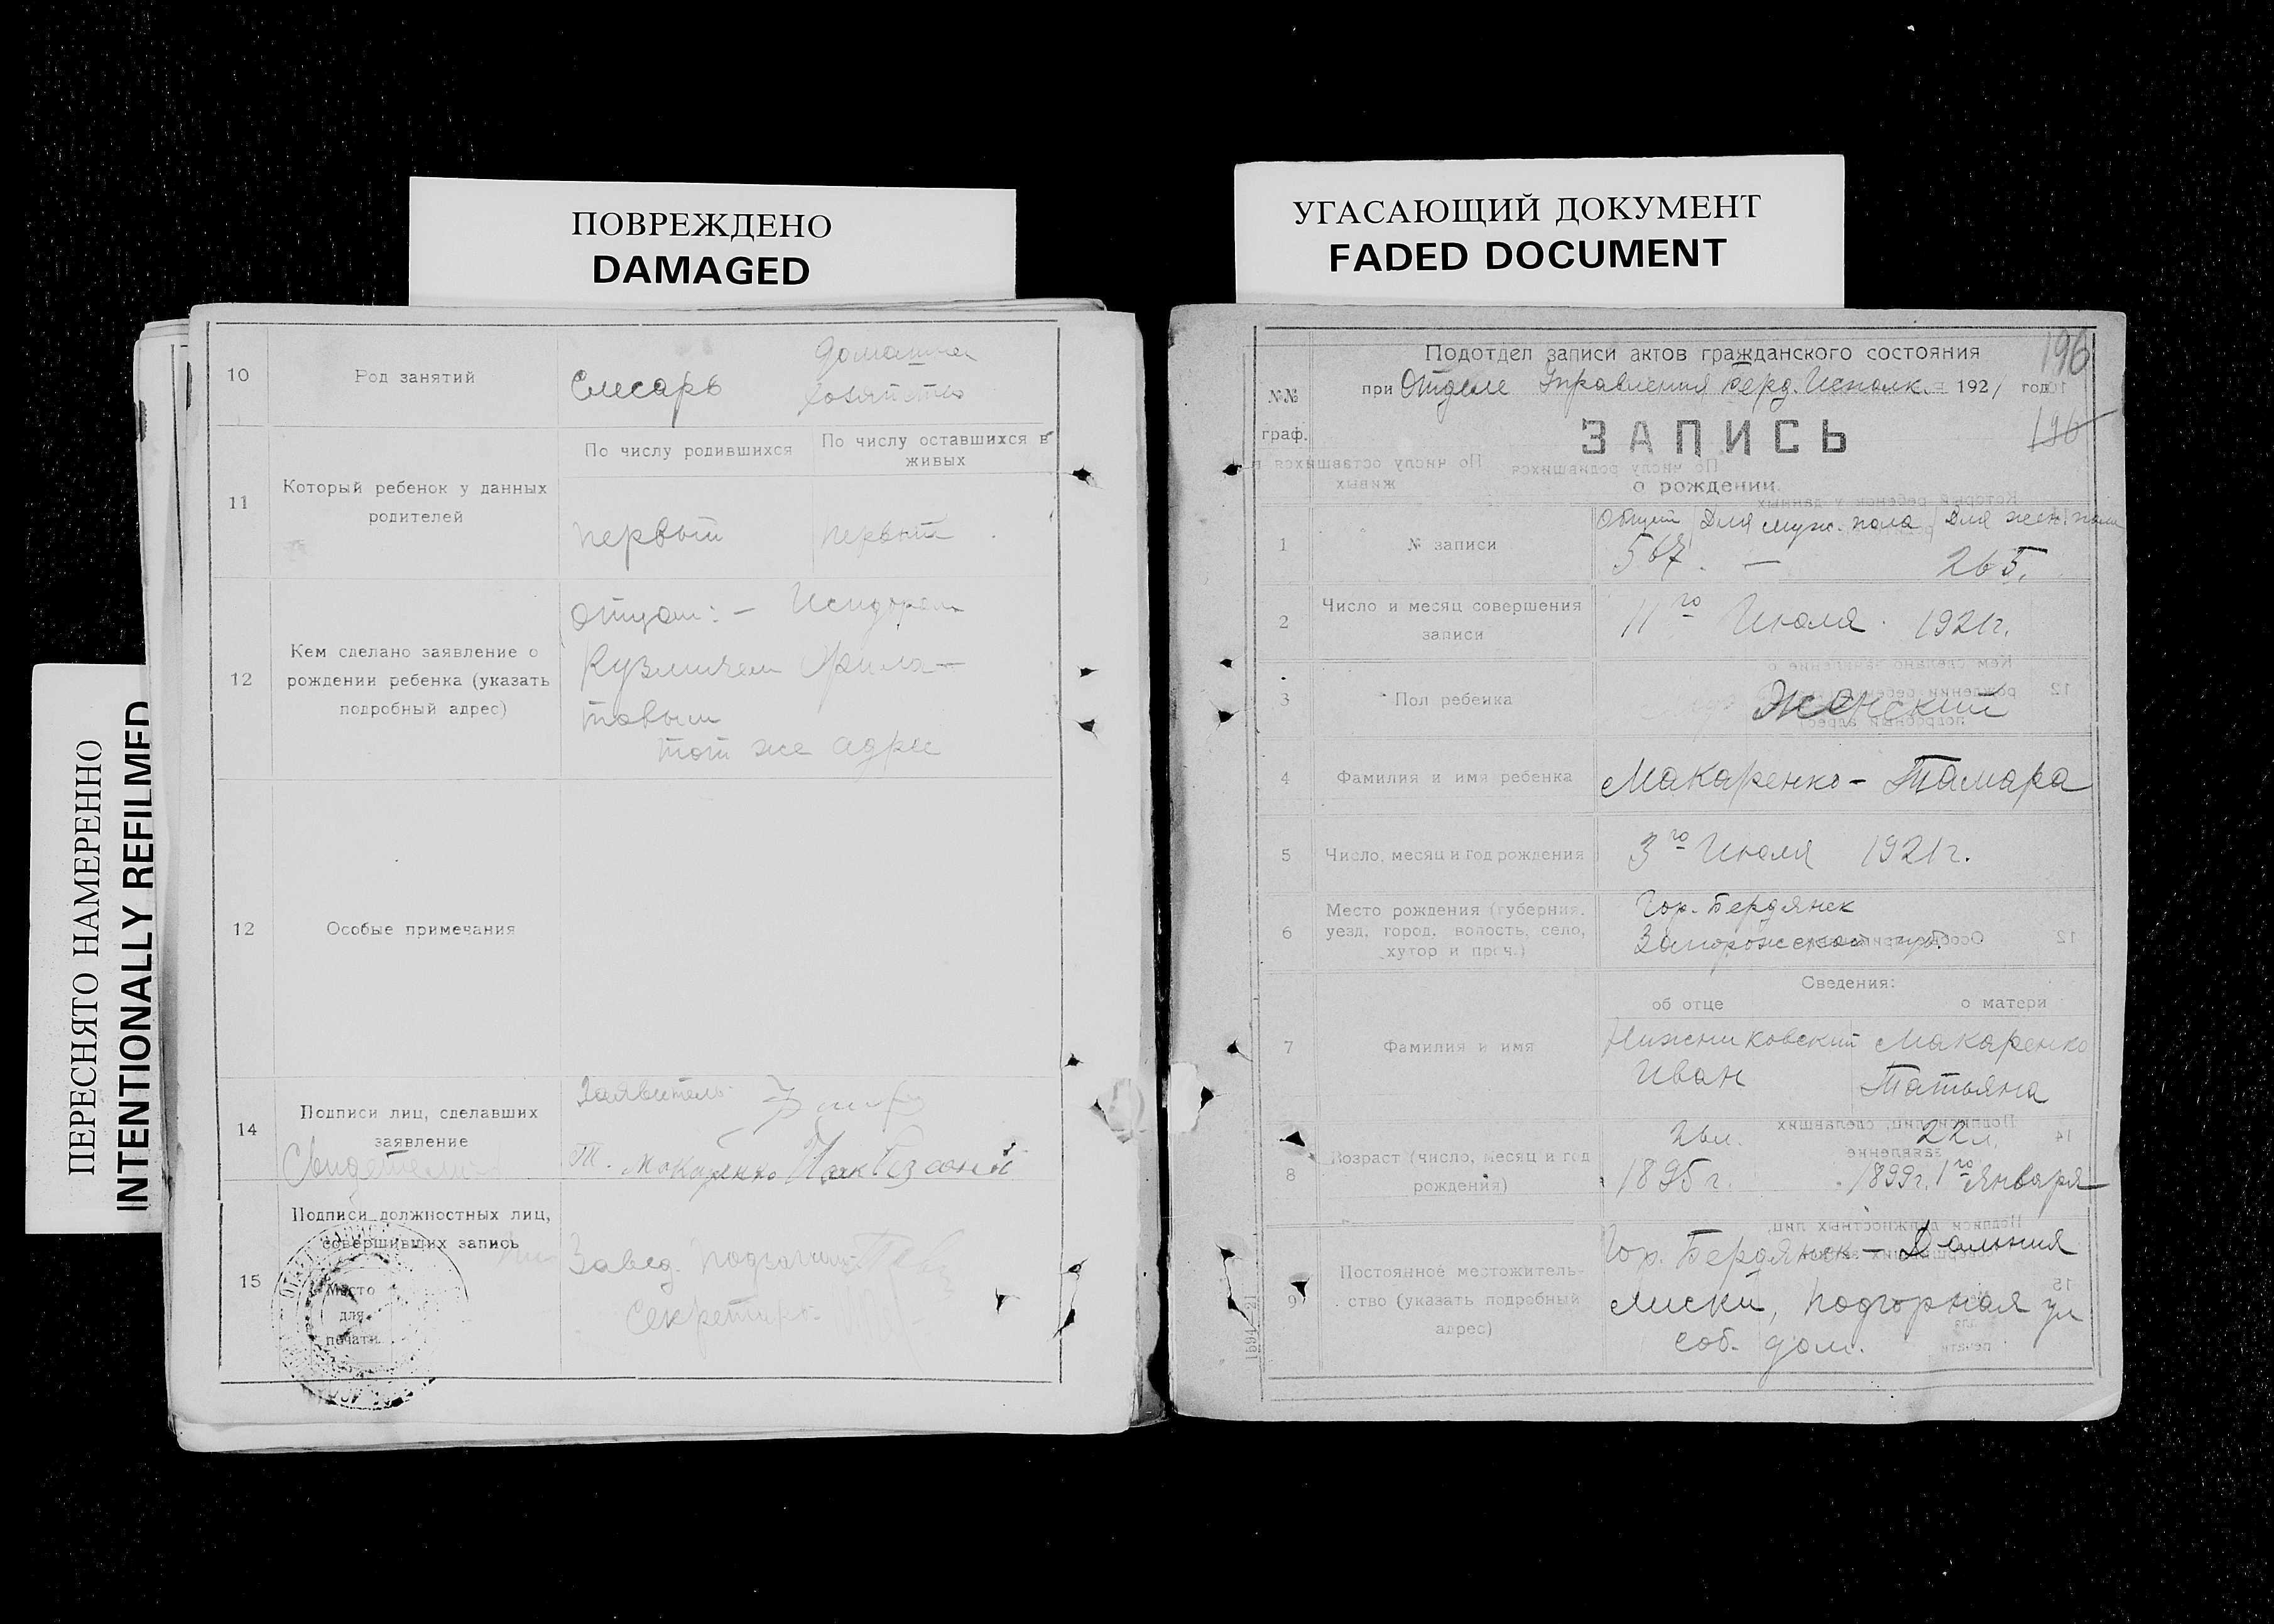 ПОВРЕЖДЕНО
DAMAGED
УГАСАЮЩИЙ ДОКУМЕНТ
FADED DOCUMENT
ПЕРЕСНЯТО НАМЕРЕННО
INTENTIONALLY REFILMED
10 Род занятий Слесарь домашнее хозяйство
11 Который ребенок у данных родителей
По числу родившихся По числу оставшихся в живых
первый первый
12 Кем сделано заявление о рождении ребенка (указать подробный адрес)
Отцом: – Исидором
Кузмичем
товым
тот же адрес
12 Особые примечания
14 Подписи лиц, сделавших заявление
Заявитель
Свидетели
Т. Макаренко
15 Подписи должностных лиц, совершивших запись
Место
для
печати
Завед.
Секретарь
196
Подотдел записи актов гражданского состояния
при Отделе Управления Берд. Исполк. 1921 год
196
№№
граф.
ЗАПИСЬ
о рождении
Общий Для муж. пола Для жен. пола
1 № записи 567. — 265.
2 Число и месяц совершения записи 11го Июля 1921г.
3 Пол ребенка Женский
4 Фамилия и имя ребенка Макаренко – Тамара
5 Число, месяц и год рождения 3го Июля 1921г.
6 Место рождения (губерния, уезд, город, волость, село, хутор и проч.)
Гор. Бердянск
Запорожской губ.
Сведения:
об отце о матери
7 Фамилия и имя
Нижниковский Макаренко
Иван Татьяна
8 Возраст (число, месяц и год рождения)
26л. 22л.
1895г. 1899г. 1го Января
9 Постоянное местожительство (указать подробный адрес)
Гор. Бердянск – Дальния
Лиски, Подгорная ул
соб. дом.
1594–21